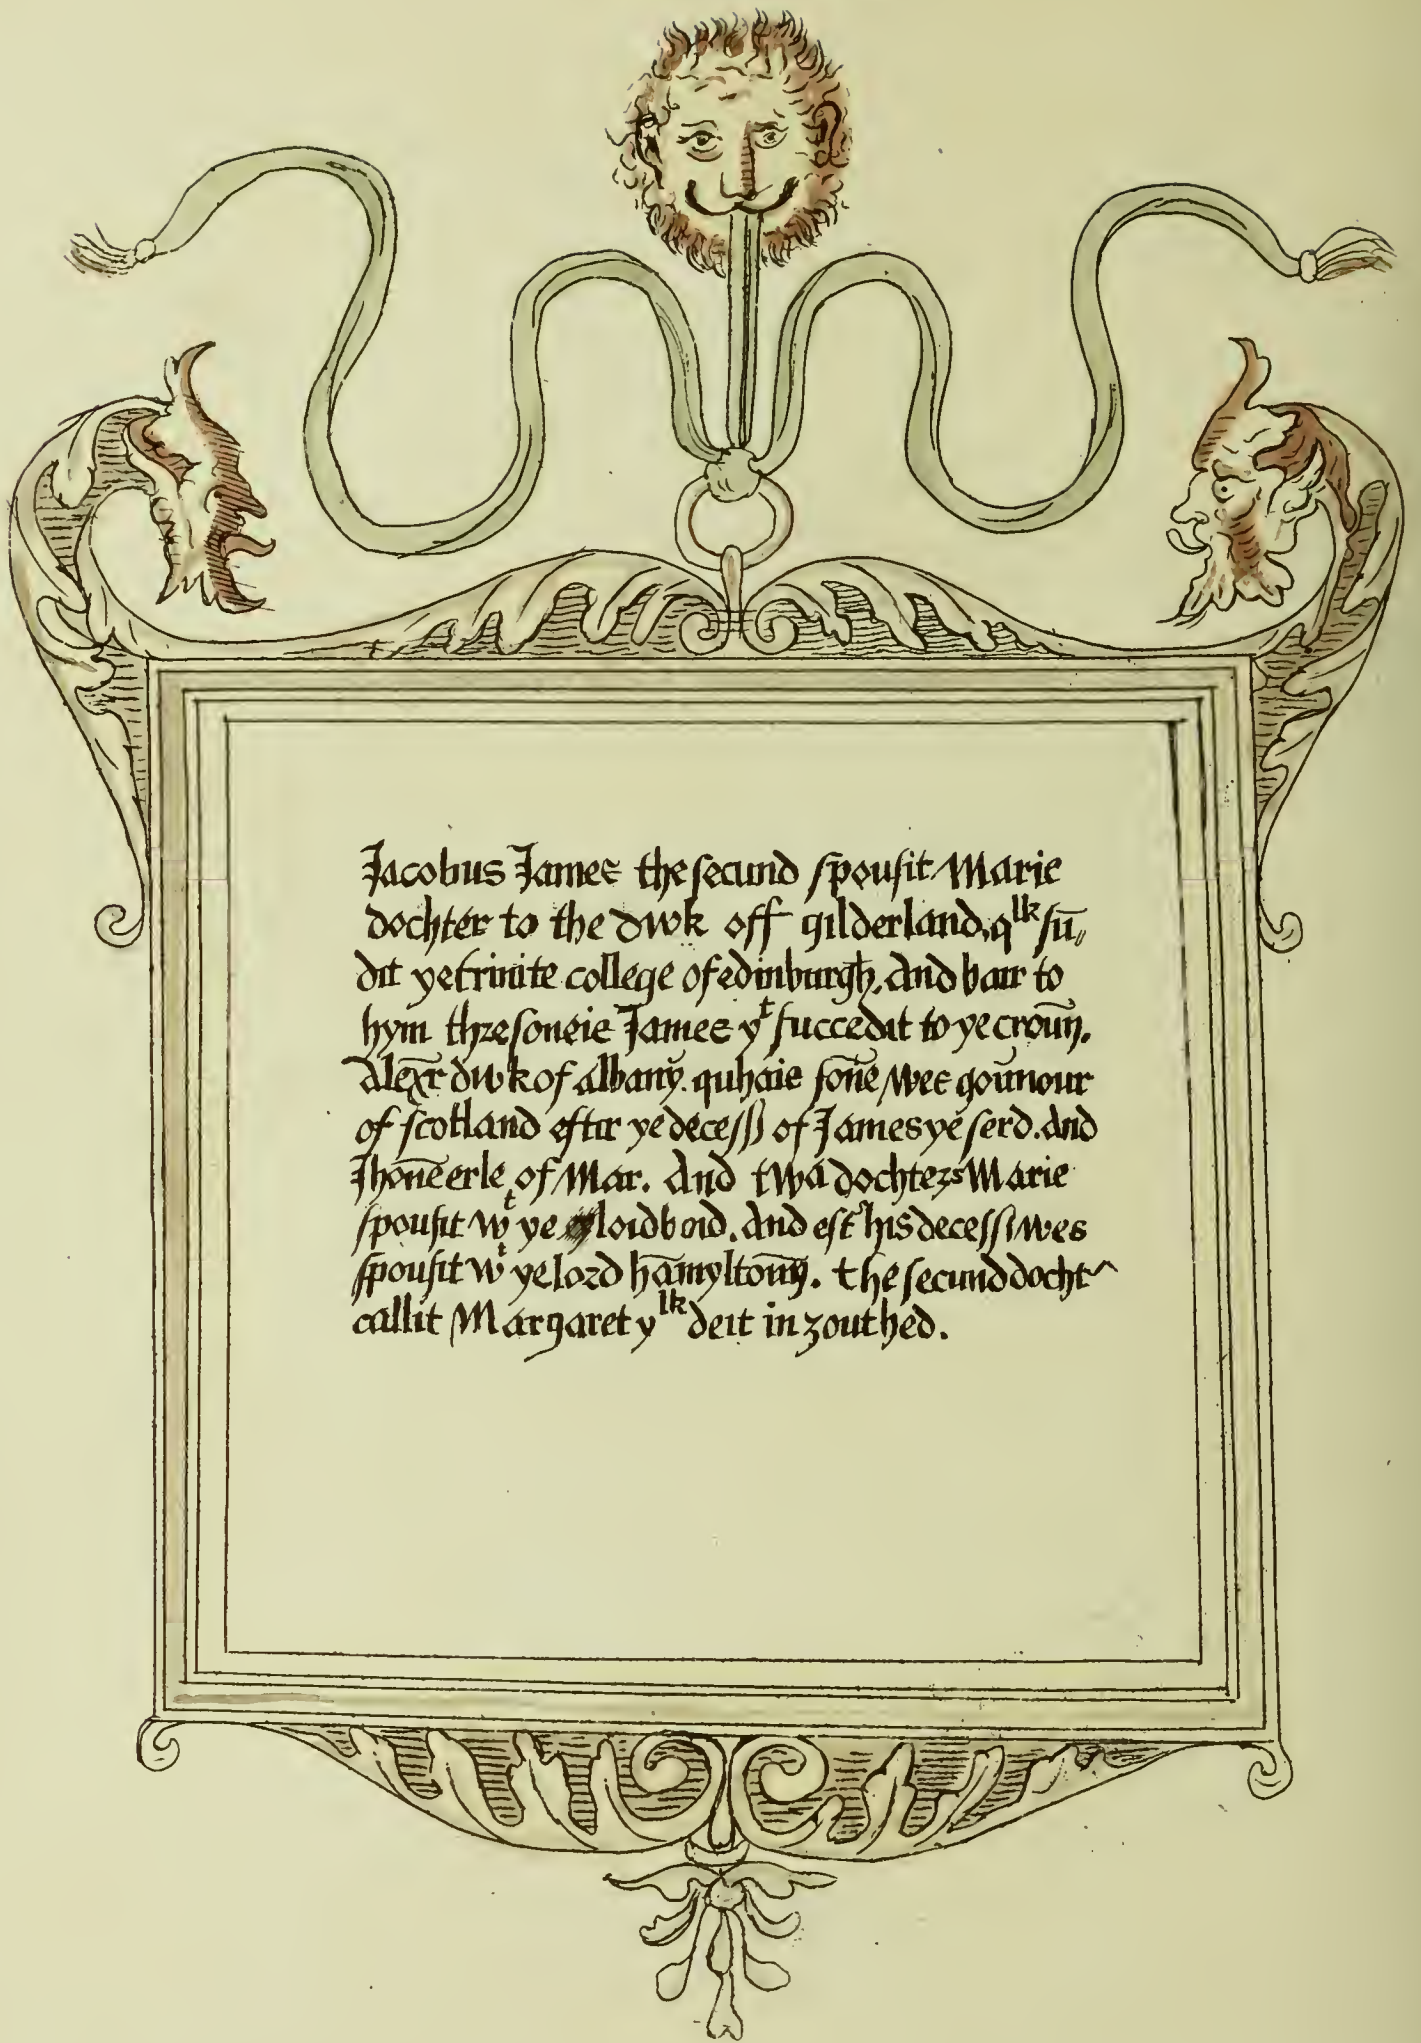 Jacobus James the secund spousit Marie
dochter to the dwk off gilderland, qlk fū〃
dit ye trinite college of edinburgh. And bair to
hym thre soneie James yt succedit to ye croun̄.
Alexr dwk of albany. quhaie sone wes goūnour
of scotland eftir ye decess of James ye ferd. And
Jhone erle of Mar. And twa dochters Marie
spousit wt ye loid boid. And eft his decess wes
spousit wt ye lord hamyltoun. the secund docht
callit Margaret ylk deit in zouthed.